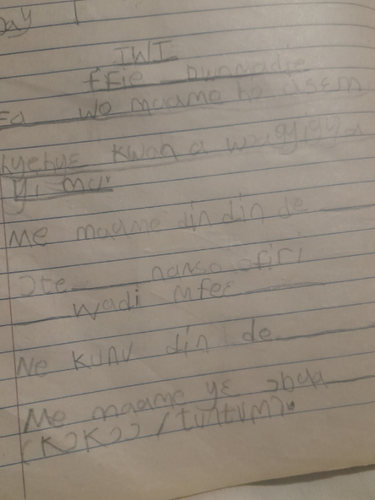 Day 1
TWI
Efie
wo maame ho asɛm
kwan a
yi ma:
Me maame din din de
Ɔte nanso ofiri
Wadi mfeɛ
Ne kunu din de
Me maame yɛ ɔbaa
(Kɔkɔɔ / tuntum).